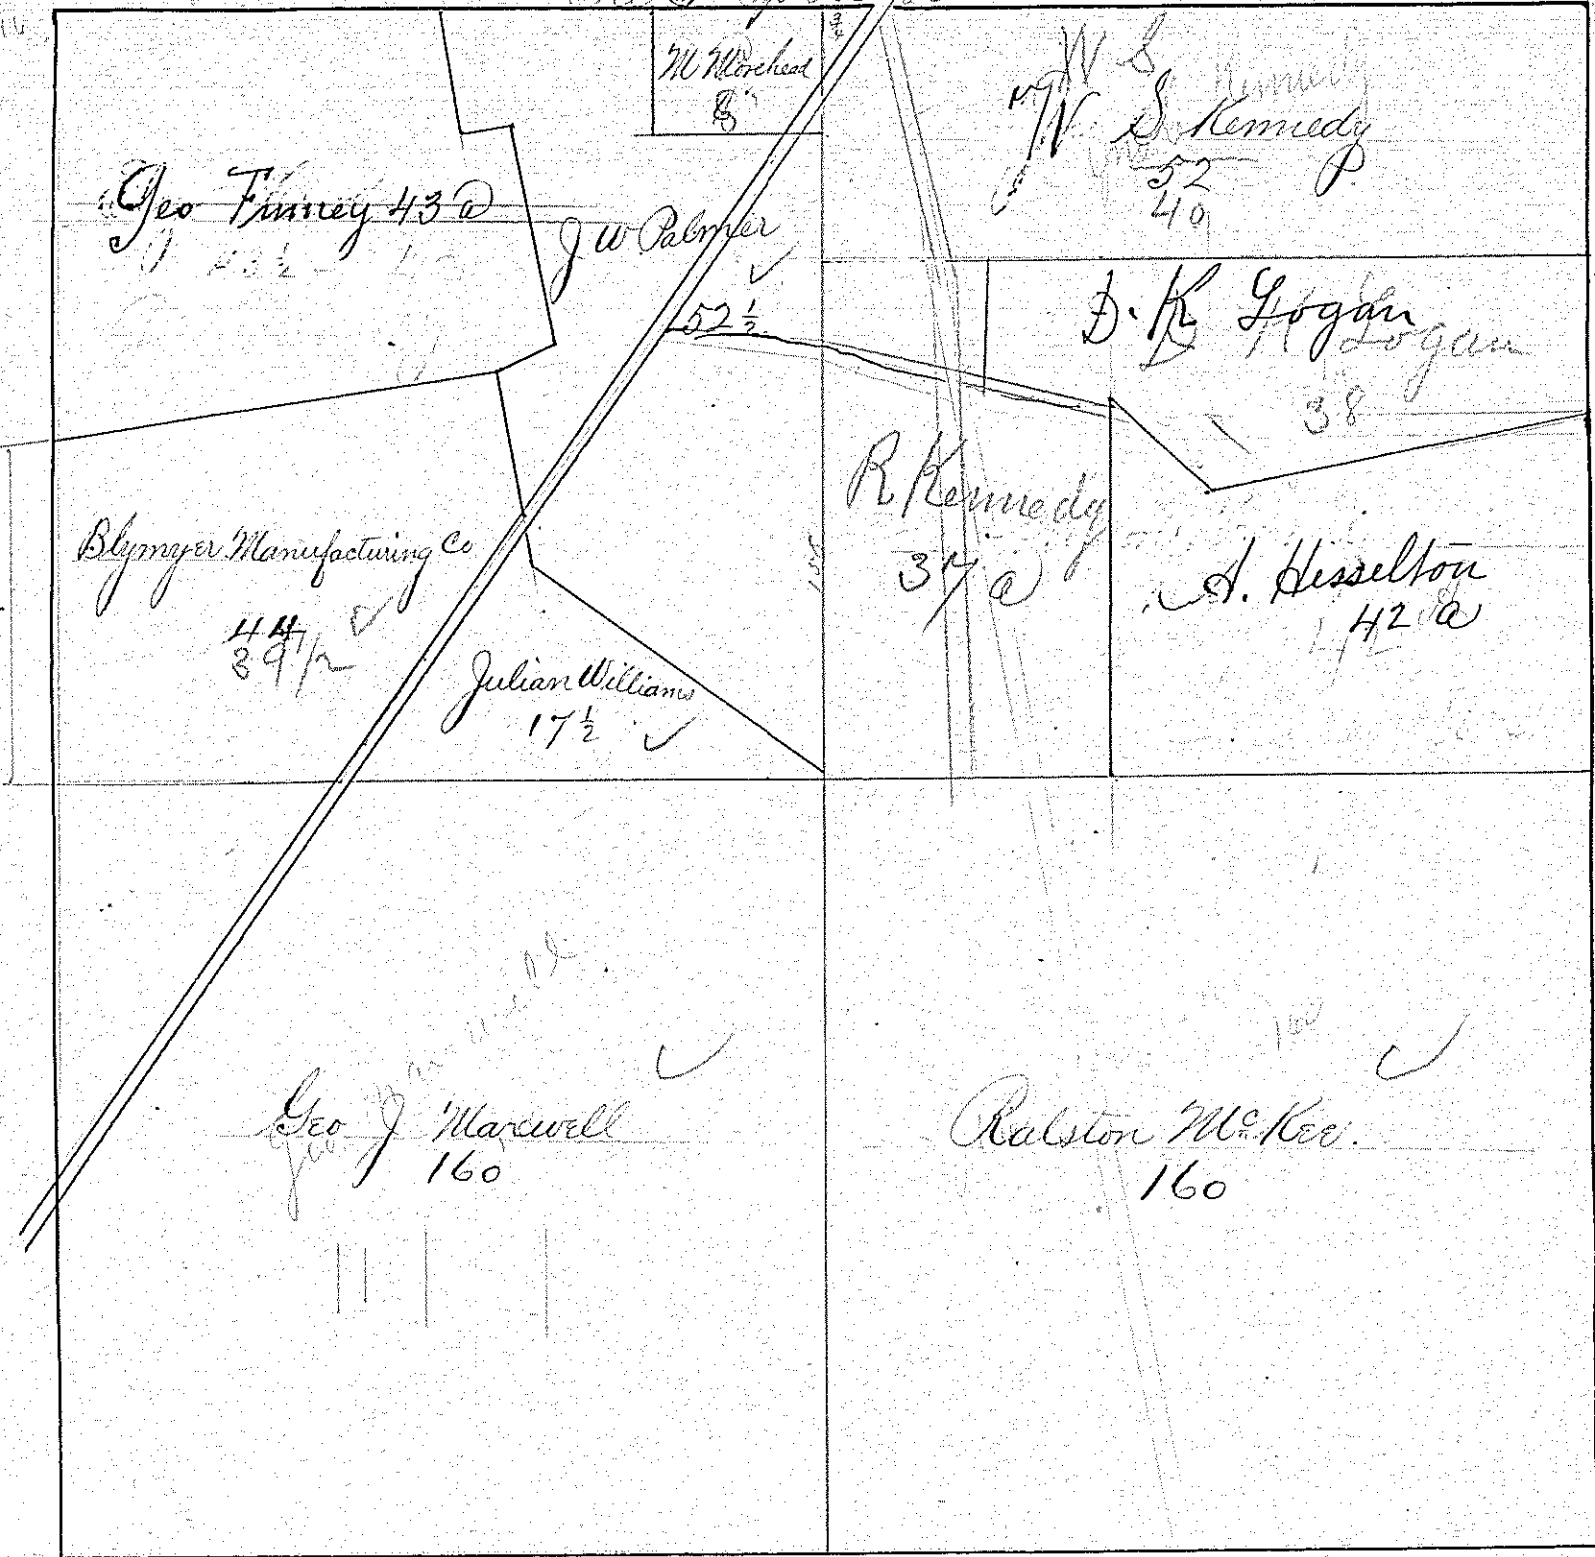 M Morehead
8
3/4
W S Kennedy
W S Kennedy
52 P.
40
Geo Finney 43 a
43 1/2
J W Palmer
52 1/2
D. K Logan
D K Logan
38
R Kennedy
37 a
A. Hisselton
42 a
42
Blymyer Manufacturing Co
44
39 1/2
Julian Williams
17 1/2
Geo J Maxwell
Geo
160
160
Ralston McKee.
160